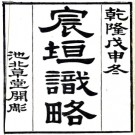 乾隆戊申冬
宸垣識略
池北草堂開雕